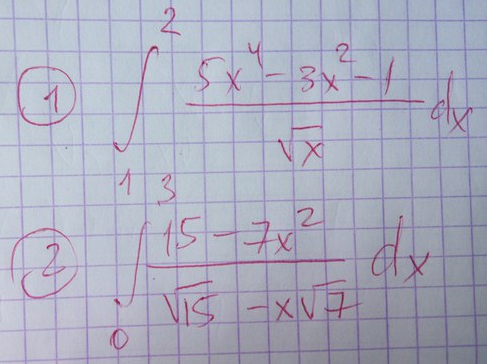 ① ∫₁² (5x⁴ - 3x² - 1)/√x dx
② ∫₀³ (15 - 7x²)/(√15 - x√7) dx